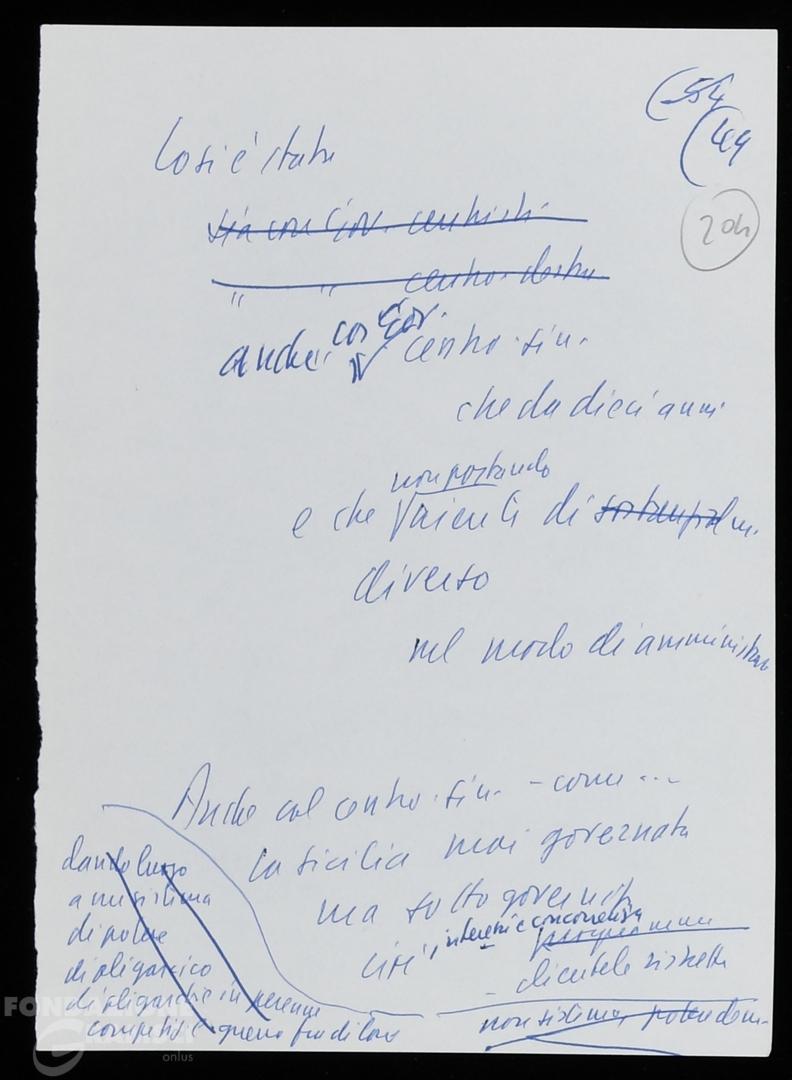 (54
(49
204
Così è stato
sia con Gov. centristi
" " centro-destra
anche con Gov.
centro-sin.
che da dieci anni
non portando
e che niente di
diverso
nel modo di amministrare
Anche col centro-sin. - come ...
la Sicilia mai governata
ma sotto governata
interessi e concorrenza
- clientele ristrette
non sistema
dando luogo
a un sistema
di potere
di oligarchie in perenne
competiz. e guerra fra di loro
FONDAZIONE
GRAMSCI
onlus